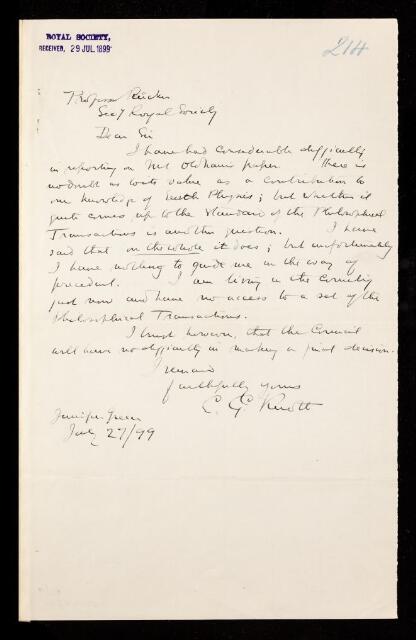 ROYAL SOCIETY,
RECEIVED, 29 JUL. 1899
214
Professor Rücker
Secy Royal Society
Dear Sir
I have had considerable difficulty
in reporting on Mr Oldham's paper. There is
no doubt as to its value as a contribution to
our knowledge of Earth Physics; but whether it
quite comes up to the standard of the Philosophical
Transactions is another question. I have
said that on the whole it does; but unfortunately
I have nothing to guide me in the way of
precedent. I am living in the Country
just now and have no access to a set of the
Philosophical Transactions.
I trust however, that the Council
will have no difficulty in making a final decision.
I remain
faithfully yours
C. G. Knott
Juniper Green
July 27/99